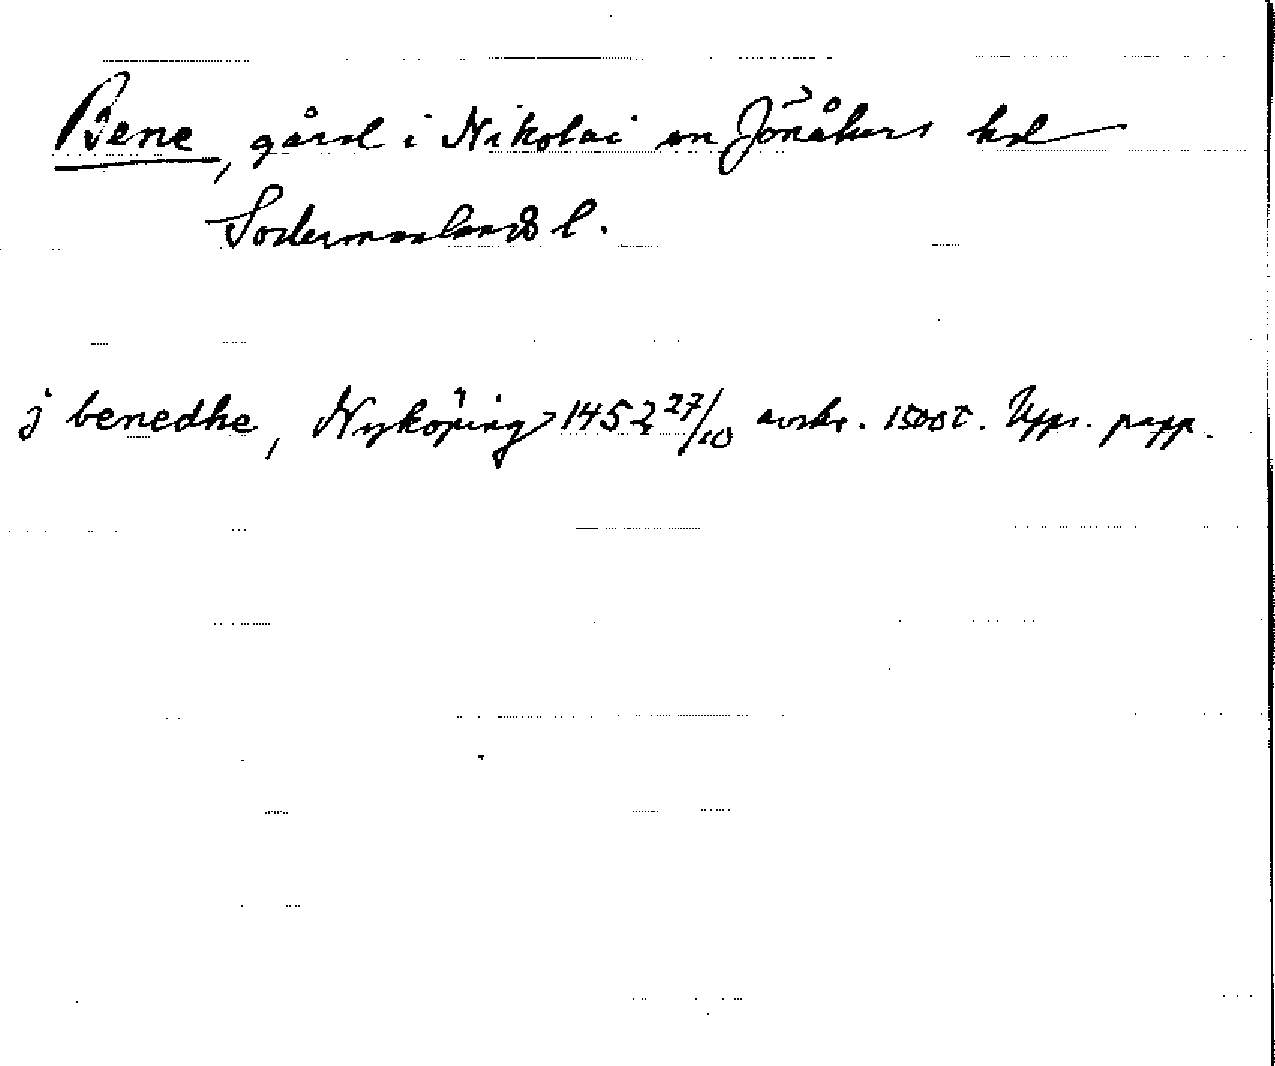 Bene, gård i Nikolai sn Jönåkers hd
Södermanlands l.
j benedhe, Nyköping 1452 27/10 avskr. 1500t. Upps. papp.